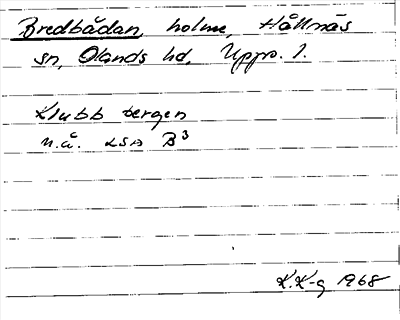 Bredbådan, holme, Hållnäs
sn, Olands hd, Upps. l.
Klubb bergen
n.å. LSA B³
K.K-g 1968